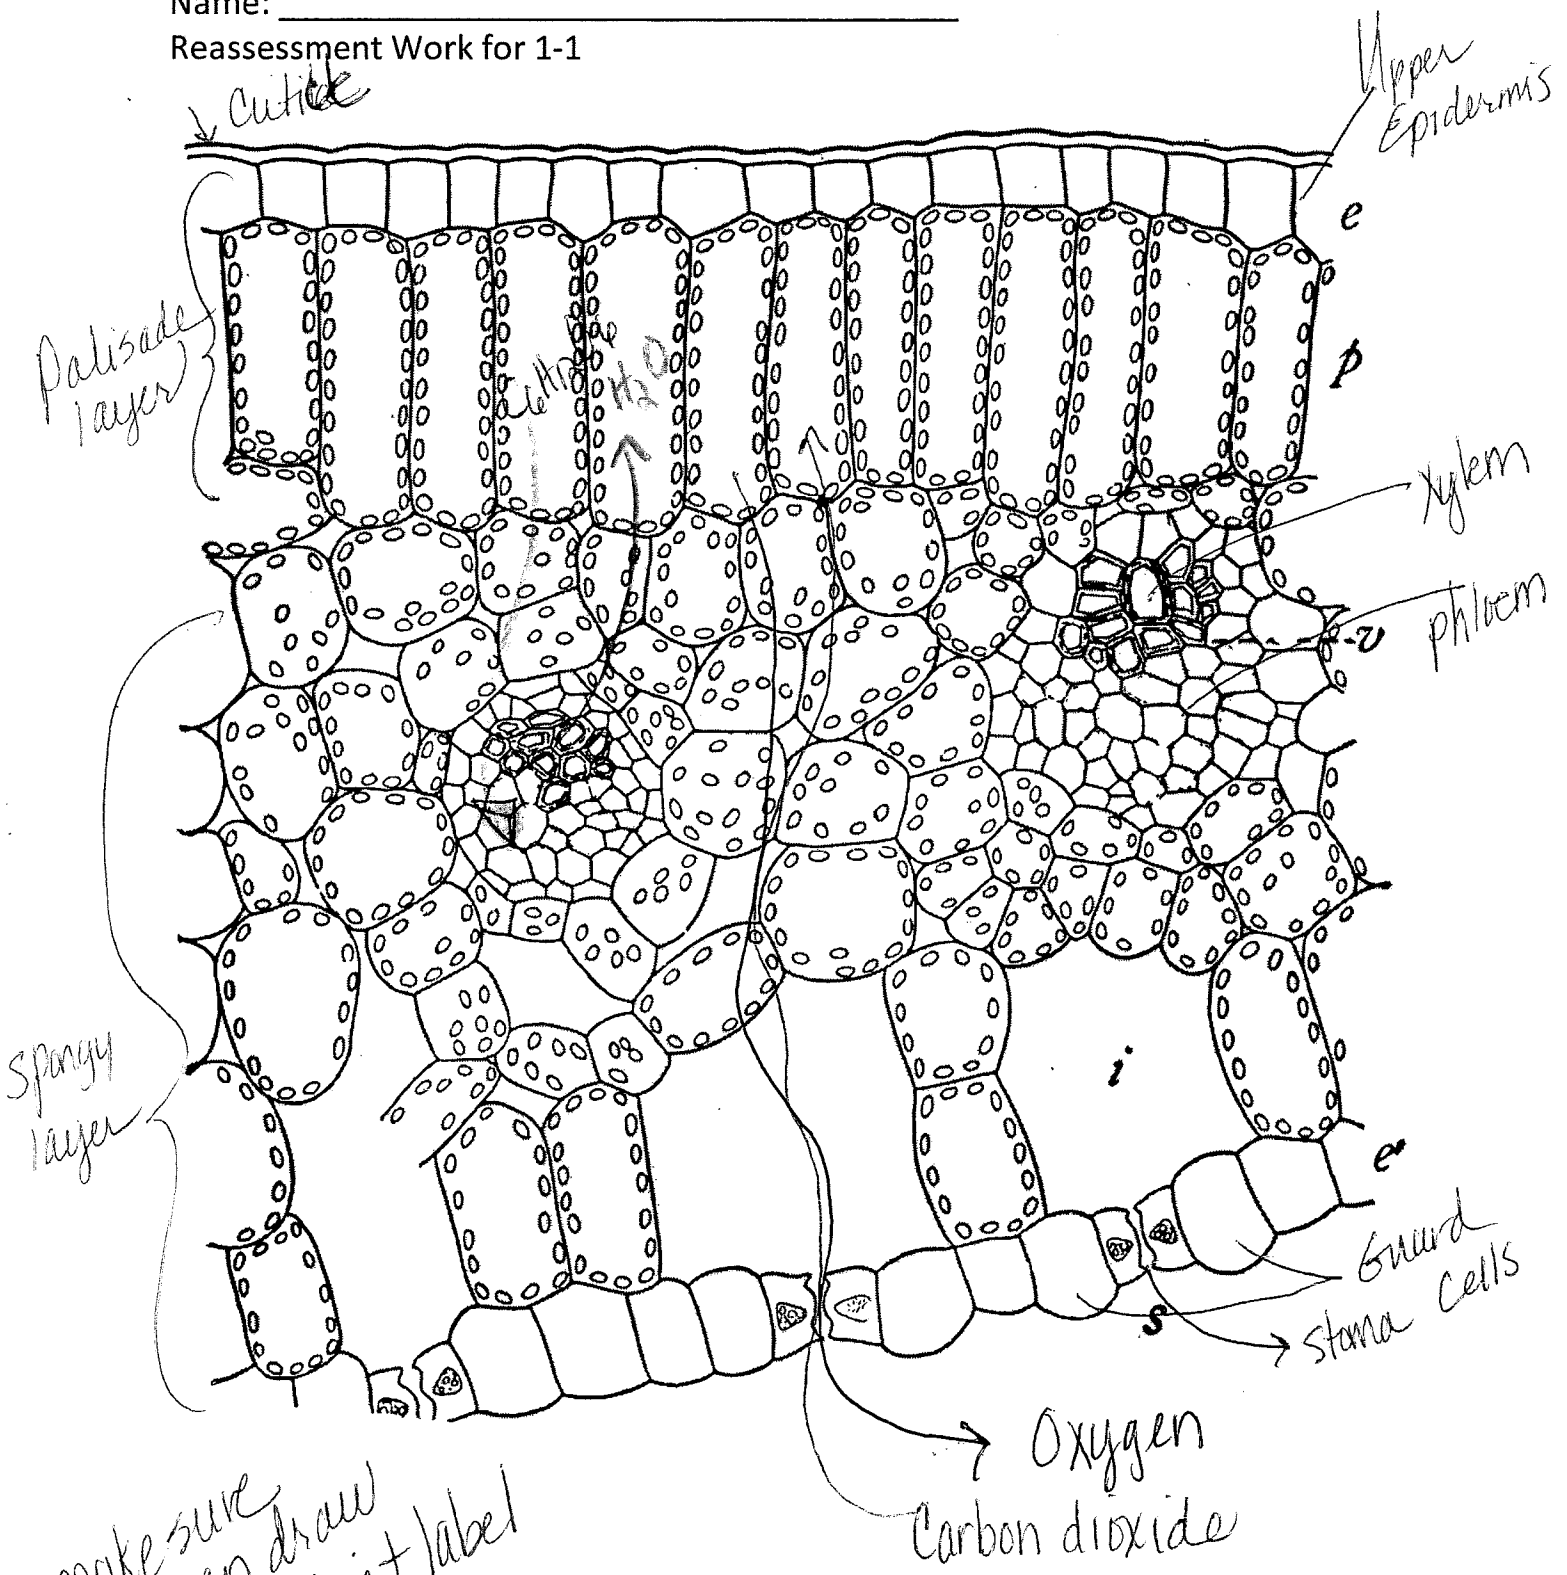 Name:
Reassessment Work for 1-1
Cuticle
Upper
Epidermis
e
Palisade
layer
C6H12O6
H2O
p
Xylem
phloem
v
Spongy
layer
i
e
Guard
Cells
s
Stoma
Oxygen
Carbon dioxide
make sure
draw
label